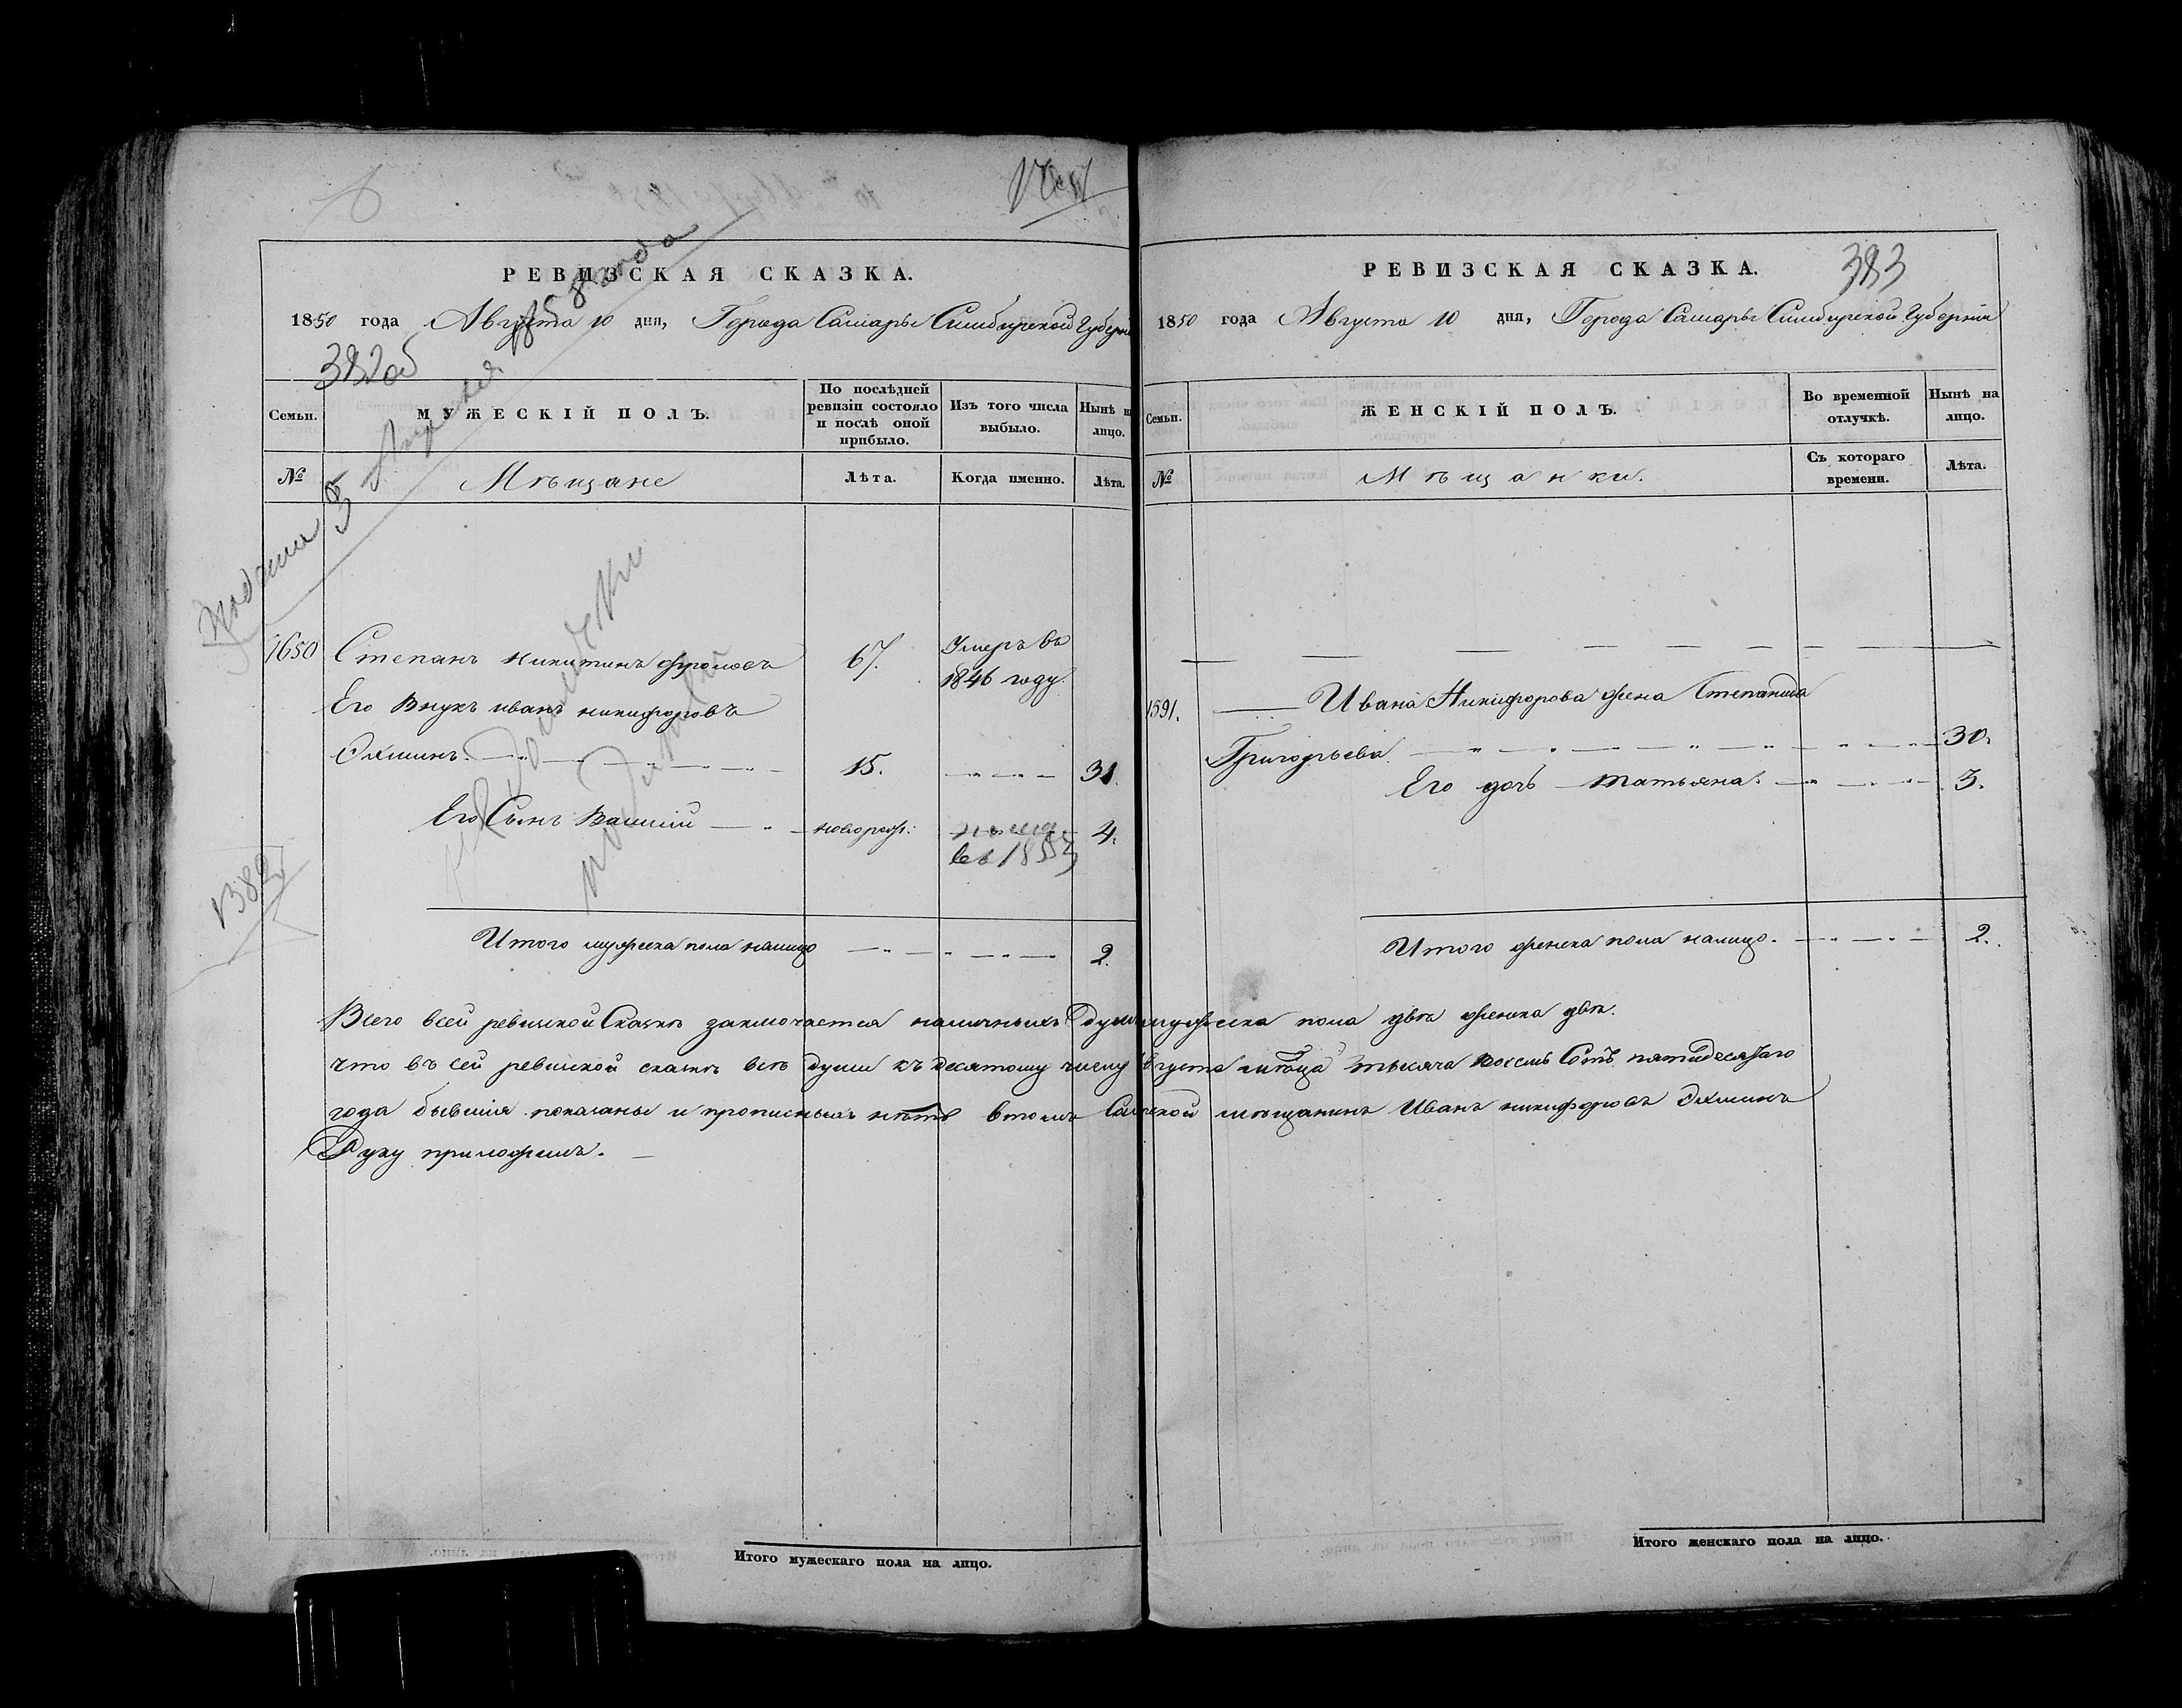 РЕВИЗСКАЯ СКАЗКА.
1850 года Августа 10 дня, Города Самары Симбирской Губерніи
382об
Семьи.
МУЖЕСКІЙ ПОЛЪ.
По послѣдней ревизіи состояло и послѣ оной прибыло.
Изъ того числа выбыло.
Нынѣ н лицо.
№
Мѣщане
Лѣта.
Когда именно.
Лѣта.
1650 Степанъ Никитинъ Фроловъ 67. Умеръ въ
1846 году.
Его Внукъ иванъ никифоровъ
15. 31.
Его Сынъ Василій новорож: 4.
въ 185
Итого мужеска пола налицо 2.
Итого мужескаго пола на лицо.
РЕВИЗСКАЯ СКАЗКА.
383
1850 года Августа 10 дня, Города Самары Симбирской Губерніи
Семьи.
ЖЕНСКІЙ ПОЛЪ.
Во временной отлучкѣ.
Нынѣ на лицо.
№
Мѣщанки.
Съ котораго времени.
Лѣта.
1591. Ивана Никифорова жена Степанида
Григорьева 30.
Его дочь Татьяна. 3.
Итого женска пола налицо. 2.
Всего всей ревизкой Сказкѣ заключается наличныхъ Душъ мужеска пола двѣ женска двѣ.
что въ сей ревизкой сказкѣ всѣ души къ десятому числу Августа мѣсяца тысяча восемь Сотъ пятидесятаго
года бывшія показаны и прописныхъ нѣтъ втомъ Самарской мѣщанинъ Иванъ никифоровъ
Руку приложилъ.
Итого женскаго пола на лицо.